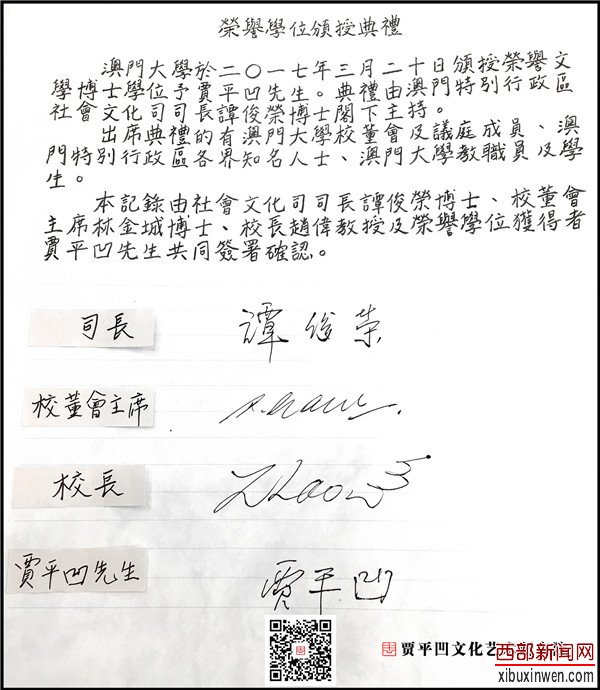 榮譽學位頒授典禮
澳門大學於二〇一七年三月二十日頒授榮譽文
學博士學位予賈平凹先生。典禮由澳門特別行政區
社會文化司司長譚俊榮博士閣下主持。
出席典禮的有澳門大學校董會及議庭成員、澳
門特別行政區各界知名人士、澳門大學教職員及學
生。
本記錄由社會文化司司長譚俊榮博士、校董會
主席林金城博士、校長趙偉教授及榮譽學位獲得者
賈平凹先生共同簽署確認。
司長
譚俊荣
校董會主席
校長
賈平凹先生
贾平凹
贾平凹文化艺
西部新闻网
xibuxinwen.com